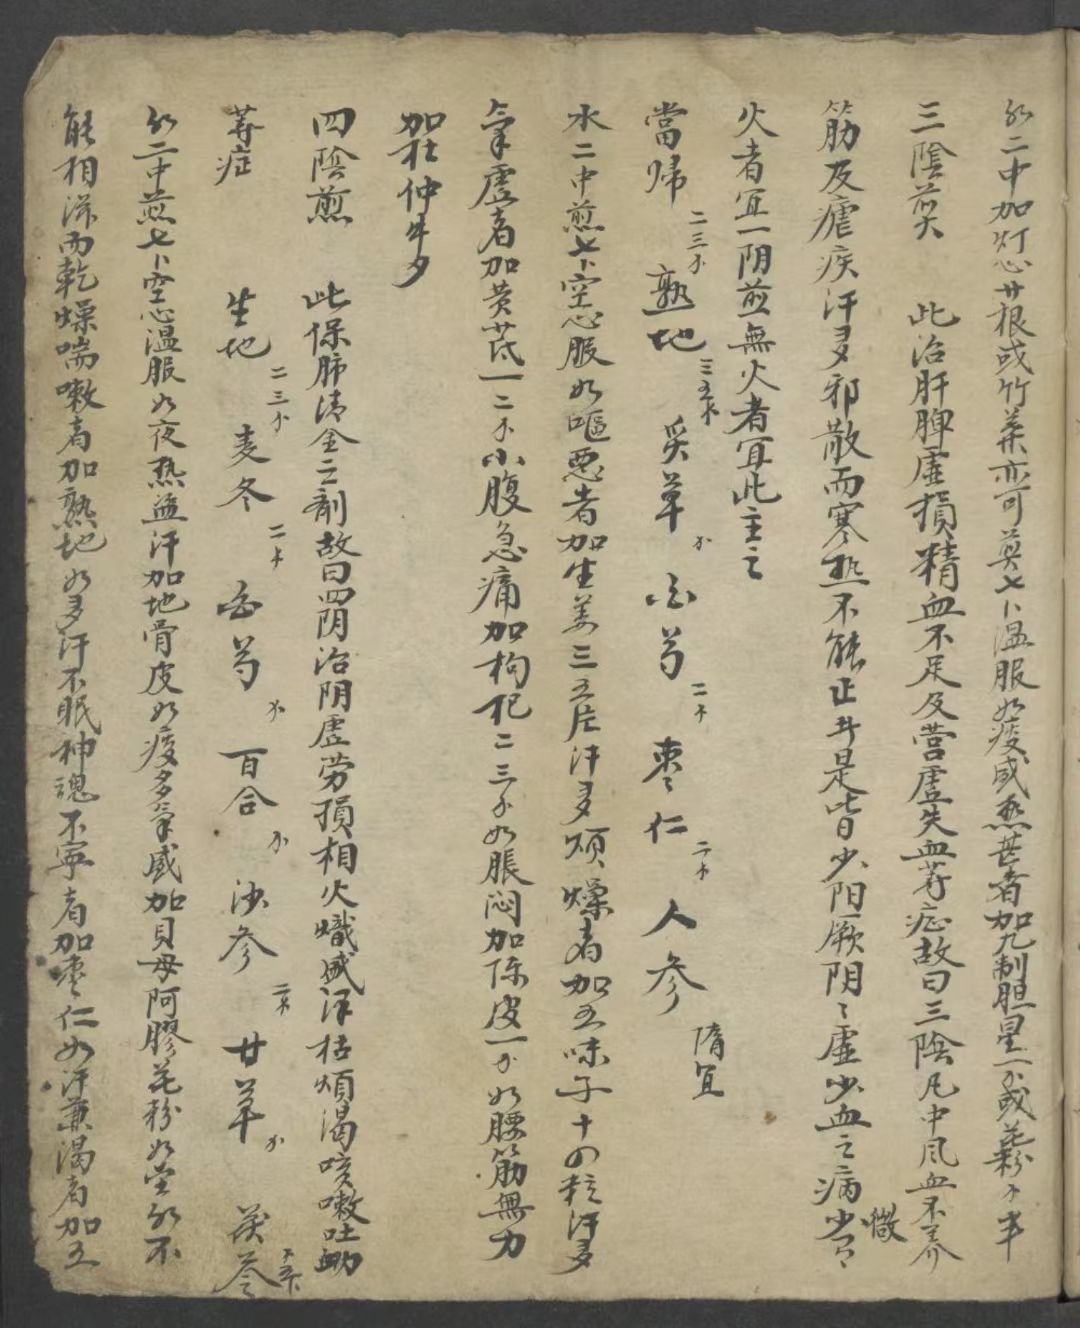 水二中加灯心廿根或竹葉亦可煎七卜温服如痰盛热甚者加九制胆星一分或花粉分半
三陰煎 此治肝脾虚損精血不足及营虚失血等症故曰三陰凡中風血不养
筋及瘧疾汗多邪散而寒热不能止井是皆少阳厥阴阴虚少血之病微
火者宜一阴煎無火者宜此主之
當归 二三分 熟地 三五分 炙草 分 白芍 二分 枣仁 二分 人参 隋宜
水二中煎七卜空心服如嘔恶者加生姜三五片汗多烦燥者加五味子十四粒汗多
氣虚者加黄芪一二分小腹急痛加枸杞二三分如脹闷加陈皮一分如腰筋無力
加杜仲牛夕
四陰煎 此保肺清金之剤故曰四阴治阴虚劳損相火熾盛津枯煩渴咳嗽吐衂
等症 生地 二三分 麦冬 二分 白芍 分 百合 分 沙参 二分 甘草 分 茯苓
水二中煎七卜空心温服如夜热盗汗加地骨皮如痰多氣盛加貝母阿膠花粉如金水不
能相滋而乾燥喘嗽者加熟地如多汗不眠神魂不寧者加枣仁如汗兼渴者加五